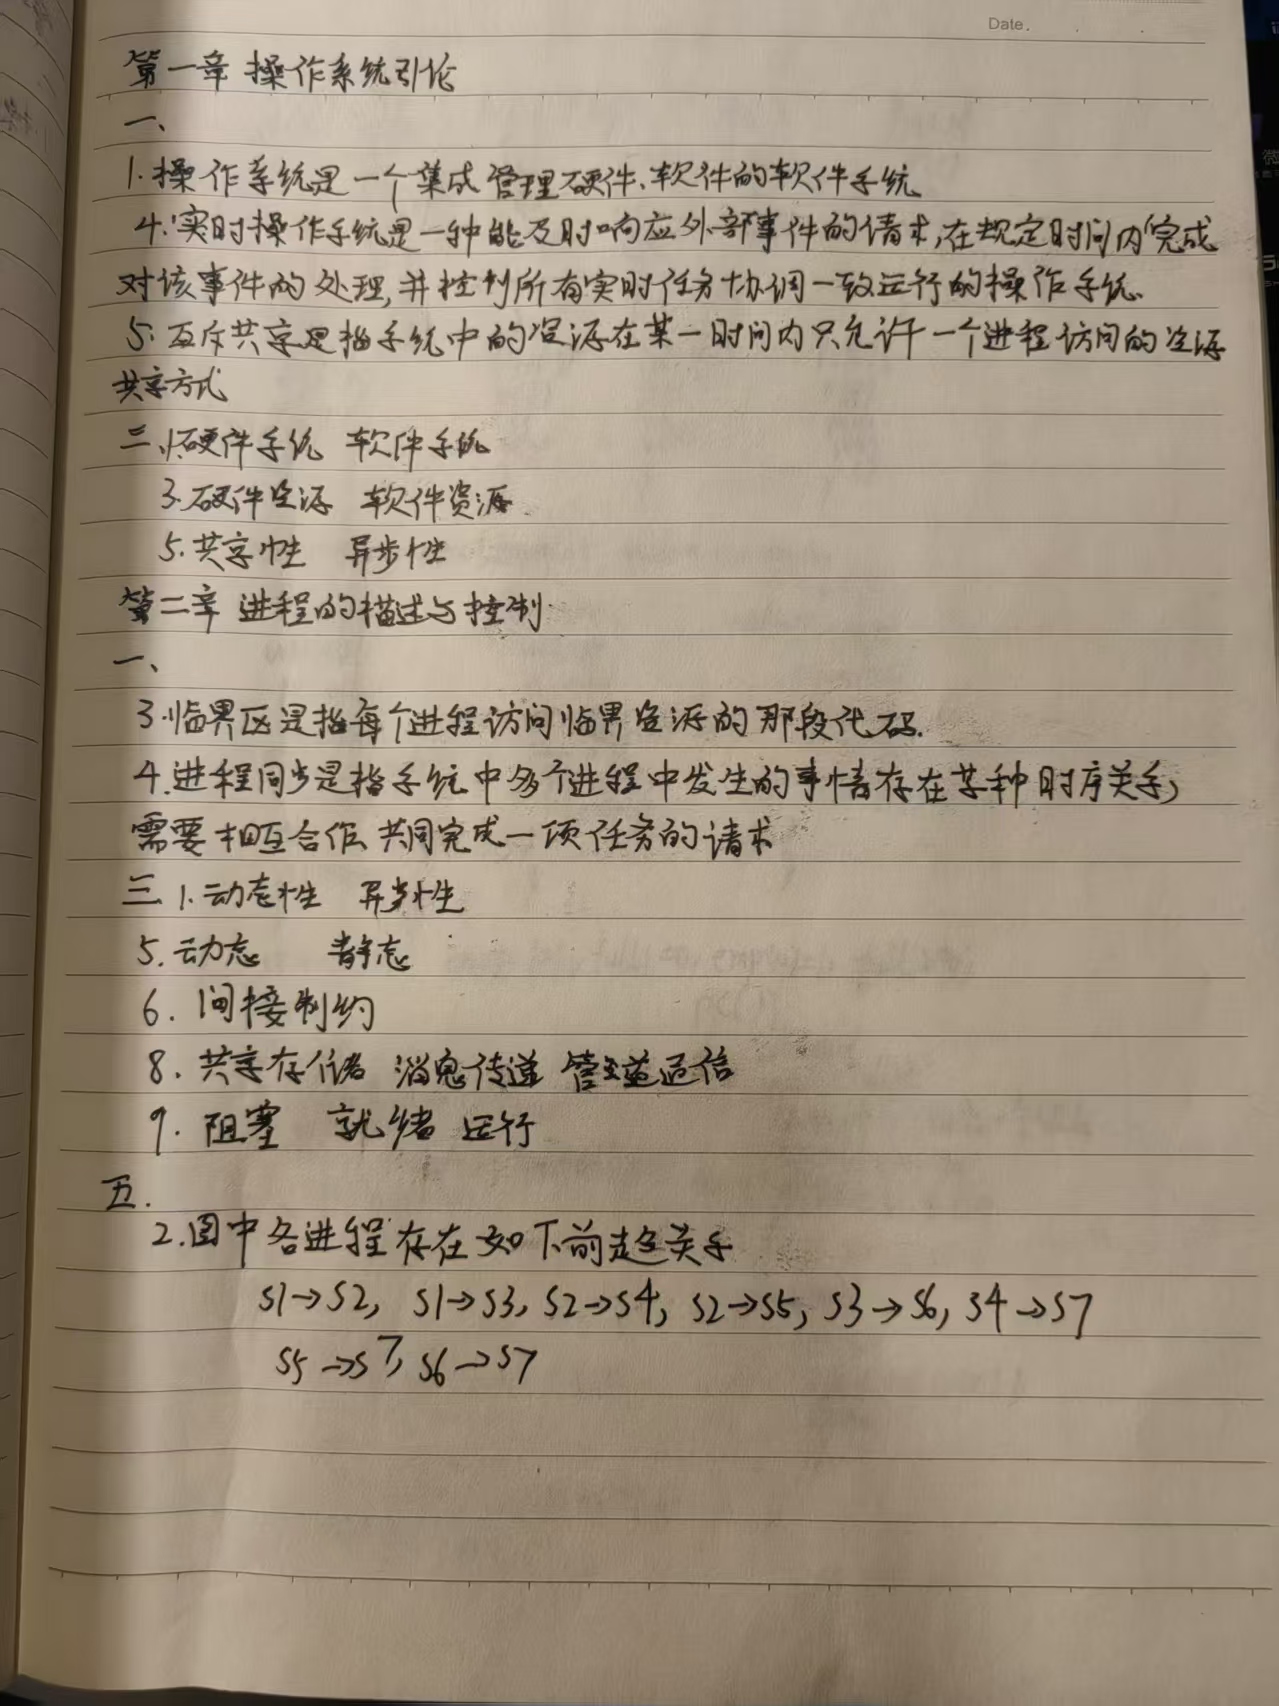 Date.
第一章 操作系统引论
一、
1.操作系统是一个集成管理硬件、软件的软件系统
4.实时操作系统是一种能及时响应外部事件的请求,在规定时间内完成
对该事件的处理,并控制所有实时任务协调一致运行的操作系统.
5.互斥共享是指系统中的资源在某一时间内只允许一个进程访问的资源
共享方式
三、1.硬件系统 软件系统
3.硬件资源 软件资源
5.共享性 异步性
第二章 进程的描述与控制
一、
3.临界区是指每个进程访问临界资源的那段代码.
4.进程同步是指系统中多个进程中发生的事情存在某种时序关系,
需要相互合作,共同完成一项任务的请求
三 1.动态性 异步性
5.动态 静态
6.间接制约
8.共享存储 消息传递 管道通信
9.阻塞 就绪 运行
五.
2.图中各进程存在如下前趋关系
S1→S2, S1→S3, S2→S4, S2→S5, S3→S6, S4→S7
S5→S7, S6→S7